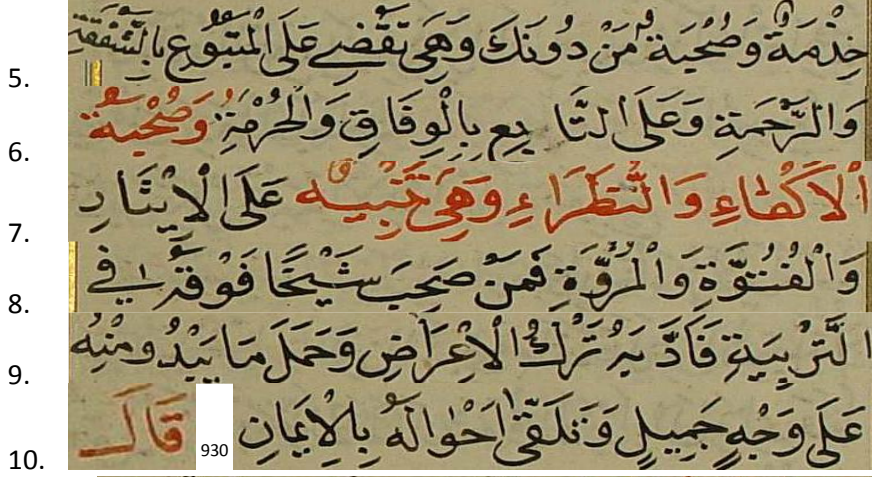 5. خِدْمَةٌ وَصُحْبَةٌ مَنْ دُونَكَ وَهِيَ تَقْضِي عَلَى الْمَتْبُوعِ بِالشَّفَقَةِ
6. وَالرَّحْمَةِ وَعَلَى التَّابِعِ بِالْوِفَاقِ وَالْحُرْمَةِ وَصُحْبَةُ
7. الْاَكْفَاءِ وَالنُّظَرَاءِ وَهِيَ تَنْبِيهٌ عَلَى الْاِيثَارِ
8. وَالْفُتُوَّةِ وَالْمُرُوَّةِ فَمَنْ صَحِبَ شَيْخًا فَوْقَهُ فِي
9. التَّرْبِيَةِ فَادَبُهُ تَرْكُ الْاِعْرَاضِ وَحَمَلَ مَا يَبْدُو مِنْهُ
10. عَلَى وَجْهٍ جَمِيلٍ وَتَلَقَّى اَحْوَالَهُ بِالْاِيمَانِ 930 قَالَ